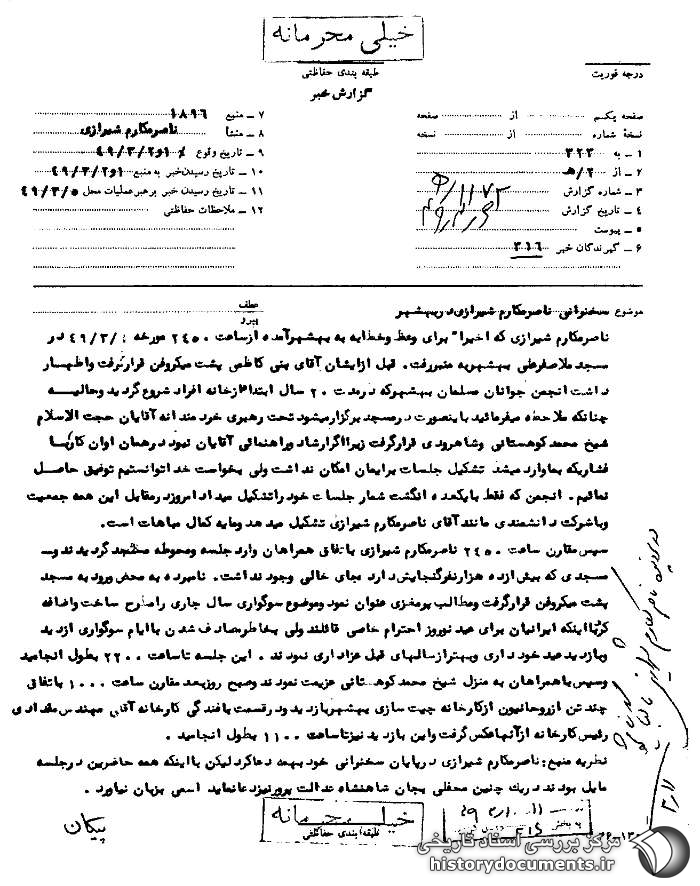 خیلی محرمانه
طبقه بندی حفاظتی
درجه فوریت
گزارش خبر
صفحه یکم از صفحه
نسخهٔ شماره از نسخه
۱ ـ به ۳۲۳
۲ ـ از ۲/هـ
۳ ـ شماره گزارش
۴ ـ تاریخ گزارش
۵ ـ پیوست
۶ ـ گیرندگان خبر ۳۱۶
۷ ـ منبع ۱۸۹۶
۸ ـ منشأ ناصرمکارم شیرازی
۹ ـ تاریخ وقوع ۱و۴۹/۳/۲
۱۰ ـ تاریخ رسیدن خبر به منبع ۱و۴۹/۳/۲
۱۱ ـ تاریخ رسیدن خبر برهبرعملیات محل ۴۹/۳/۵
۱۲ ـ ملاحظات حفاظتی
موضوع سخنرانی ناصرمکارم شیرازی دربهشهر
عطف
پیرو
ناصرمکارم شیرازی که اخیرا" برای وعظ وخطابه به بهشهرآمده ازساعت ۲۴۵۰ مورخه ۴۹/۳/۱ در
مسجد ملاصفرعلی بهشهربه منبررفت. قبل ازایشان آقای بنی کاظمی پشت میکروفن قرارگرفت واظهار
داشت انجمن جوانان مسلمان بهشهرکه درمدت ۲۰ سال ابتدا ازخانه افراد شروع گردید وحالیه
چنانکه ملاحظه میفرمائید باینصورت درمسجد برگزارمیشود تحت رهبری خردمندانه آقایان حجت الاسلام
شیخ محمدکوهستانی وشاهرودی قرارگرفت زیرااگرارشاد وراهنمائی آقایان نبود درهمان اوان کاربا
فشاریکه بماوارد میشد تشکیل جلسات برایمان امکان نداشت ولی بخواست خداتوانستیم توفیق حاصل
نمائیم. انجمن که فقط بایکعده انگشت شمار جلسات خودراتشکیل میداد امروزدرمقابل این همه جمعیت
وباشرکت دانشمندی مانندآقای ناصرمکارم شیرازی تشکیل میدهد ومایه کمال مباهات است.
سپس مقارن ساعت ۲۴۵۰ ناصرمکارم شیرازی باتفاق همراهان وارد جلسه ومحوطه مسجد گردیدند و
مسجدی که بیش ازده هزارنفرگنجایش دارد جای خالی وجود نداشت. نامبرده به محض ورود به مسجد
پشت میکروفن قرارگرفت ومطالب پرمغزی عنوان نمود وموضوع سوگواری سال جاری رامطرح ساخت واضافه
کردبااینکه ایرانیان برای عید نوروز احترام خاصی قائلند ولی بخاطرمصادف شدن باایام سوگواری ازدید
وبازدید عید خودداری وبهترازسالهای قبل عزاداری نمودند. این جلسه تاساعت ۲۲۰۰ بطول انجامید
وسپس باهمراهان به منزل شیخ محمدکوهستانی عزیمت نمودند وصبح روزبعد مقارن ساعت ۱۰۰۰ باتفاق
چند تن ازروحانیون ازکارخانه چیت سازی بهشهربازدید ودرقسمت بافندگی کارخانه آقای مهندس مقدادی
رئیس کارخانه ازآنهاعکس گرفت واین بازدید نیزتاساعت ۱۱۰۰ بطول انجامید.
نظریه منبع: ناصرمکارم شیرازی درپایان سخنرانی خود بهمه دعاکرد لیکن بااینکه همه حاضرین درجلسه
مایل بودند دریک چنین محفلی بجان شاهنشاه عدالت پرورنیزدعانماید اسمی بزبان نیاورد.
خیلی محرمانه
طبقه بندی حفاظتی
پیکان
مرکز بررسی اسناد تاریخی
historydocuments.ir